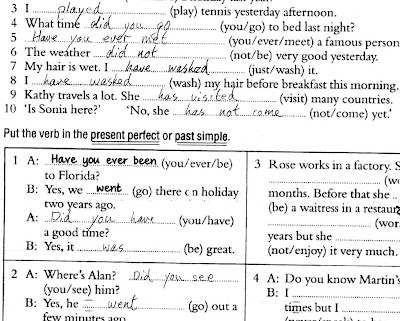 3 I played (play) tennis yesterday afternoon.
4 What time did you go (you/go) to bed last night?
5 Have you ever met (you/ever/meet) a famous person
6 The weather did not (not/be) very good yesterday.
7 My hair is wet. I have washed (just/wash) it.
8 I have washed (wash) my hair before breakfast this morning.
9 Kathy travels a lot. She has visited (visit) many countries.
10 'Is Sonia here?' 'No, she has not come (not/come) yet.'
Put the verb in the present perfect or past simple.
1 A: Have you ever been (you/ever/be)
to Florida?
B: Yes, we went (go) there on holiday
two years ago.
A: Did you have (you/have)
a good time?
B: Yes, it was (be) great.
2 A: Where's Alan? Did you see
(you/see) him?
B: Yes, he went (go) out a
few minutes ago.
3 Rose works in a factory. S
(w
months. Before that she
(be) a waitress in a restaur
(wor
years but she
(not/enjoy) it very much.
4 A: Do you know Martin's
B: I
times but I